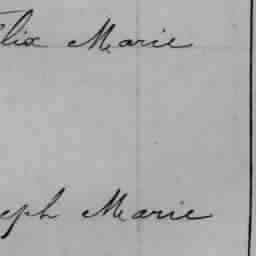 élix Marie
seph Marie